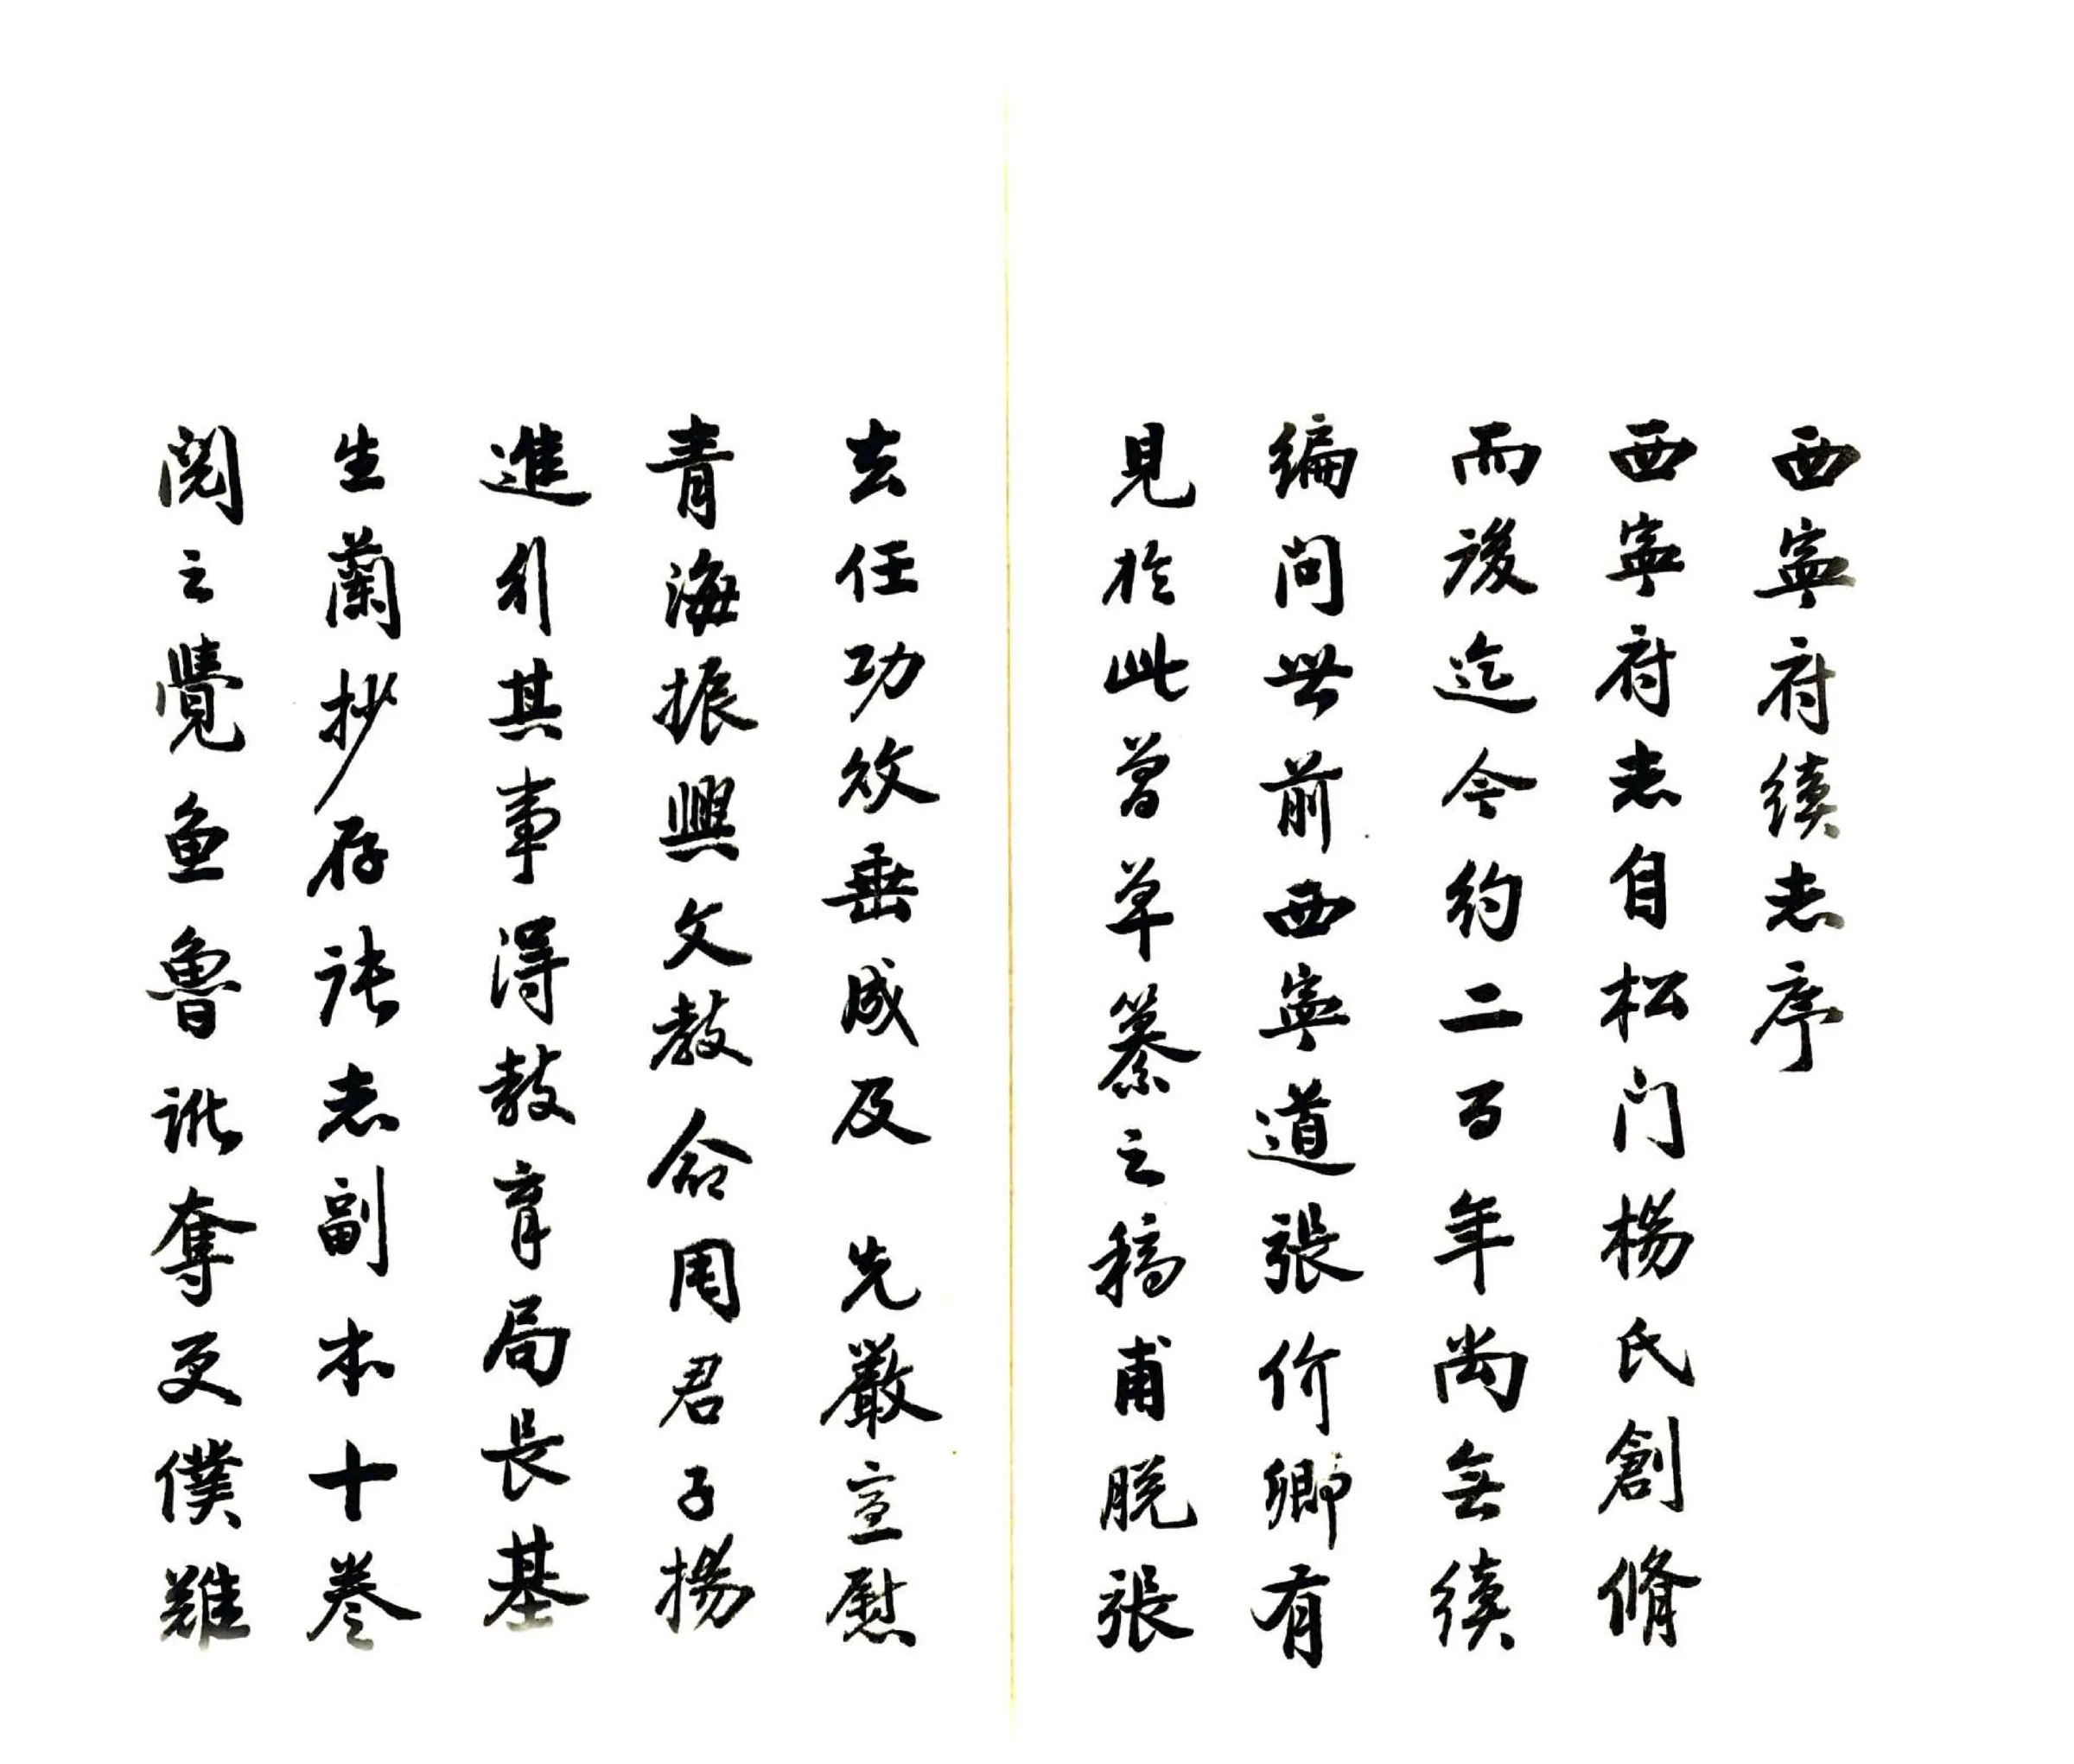 西寧府續志序
西寧府志自松门楊氏創脩
而後迄今約二百年尚無續
编问世前西寧道張价卿有
見於此曾草纂之稿甫脱張
去任功效垂成及 先嚴宣慰
青海振興文教命用君子揚
進引其事得教育局長基
生蘭抄存張志副本十卷
閱之覺鱼魯訛奪更僕難